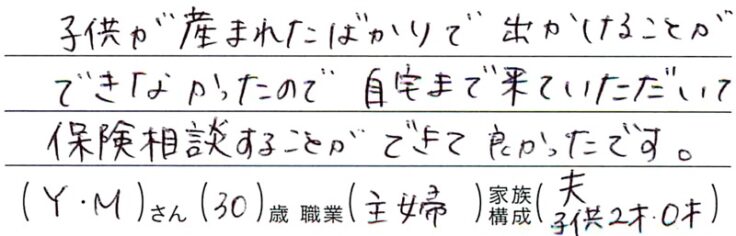 子供が産まれたばかりで 出かけることが
できなかったので 自宅まで来ていただいて
保険相談することが できて 良かったです。
(Y・M)さん(30)歳 職業(主婦 )家族構成(夫
子供2才・0才)